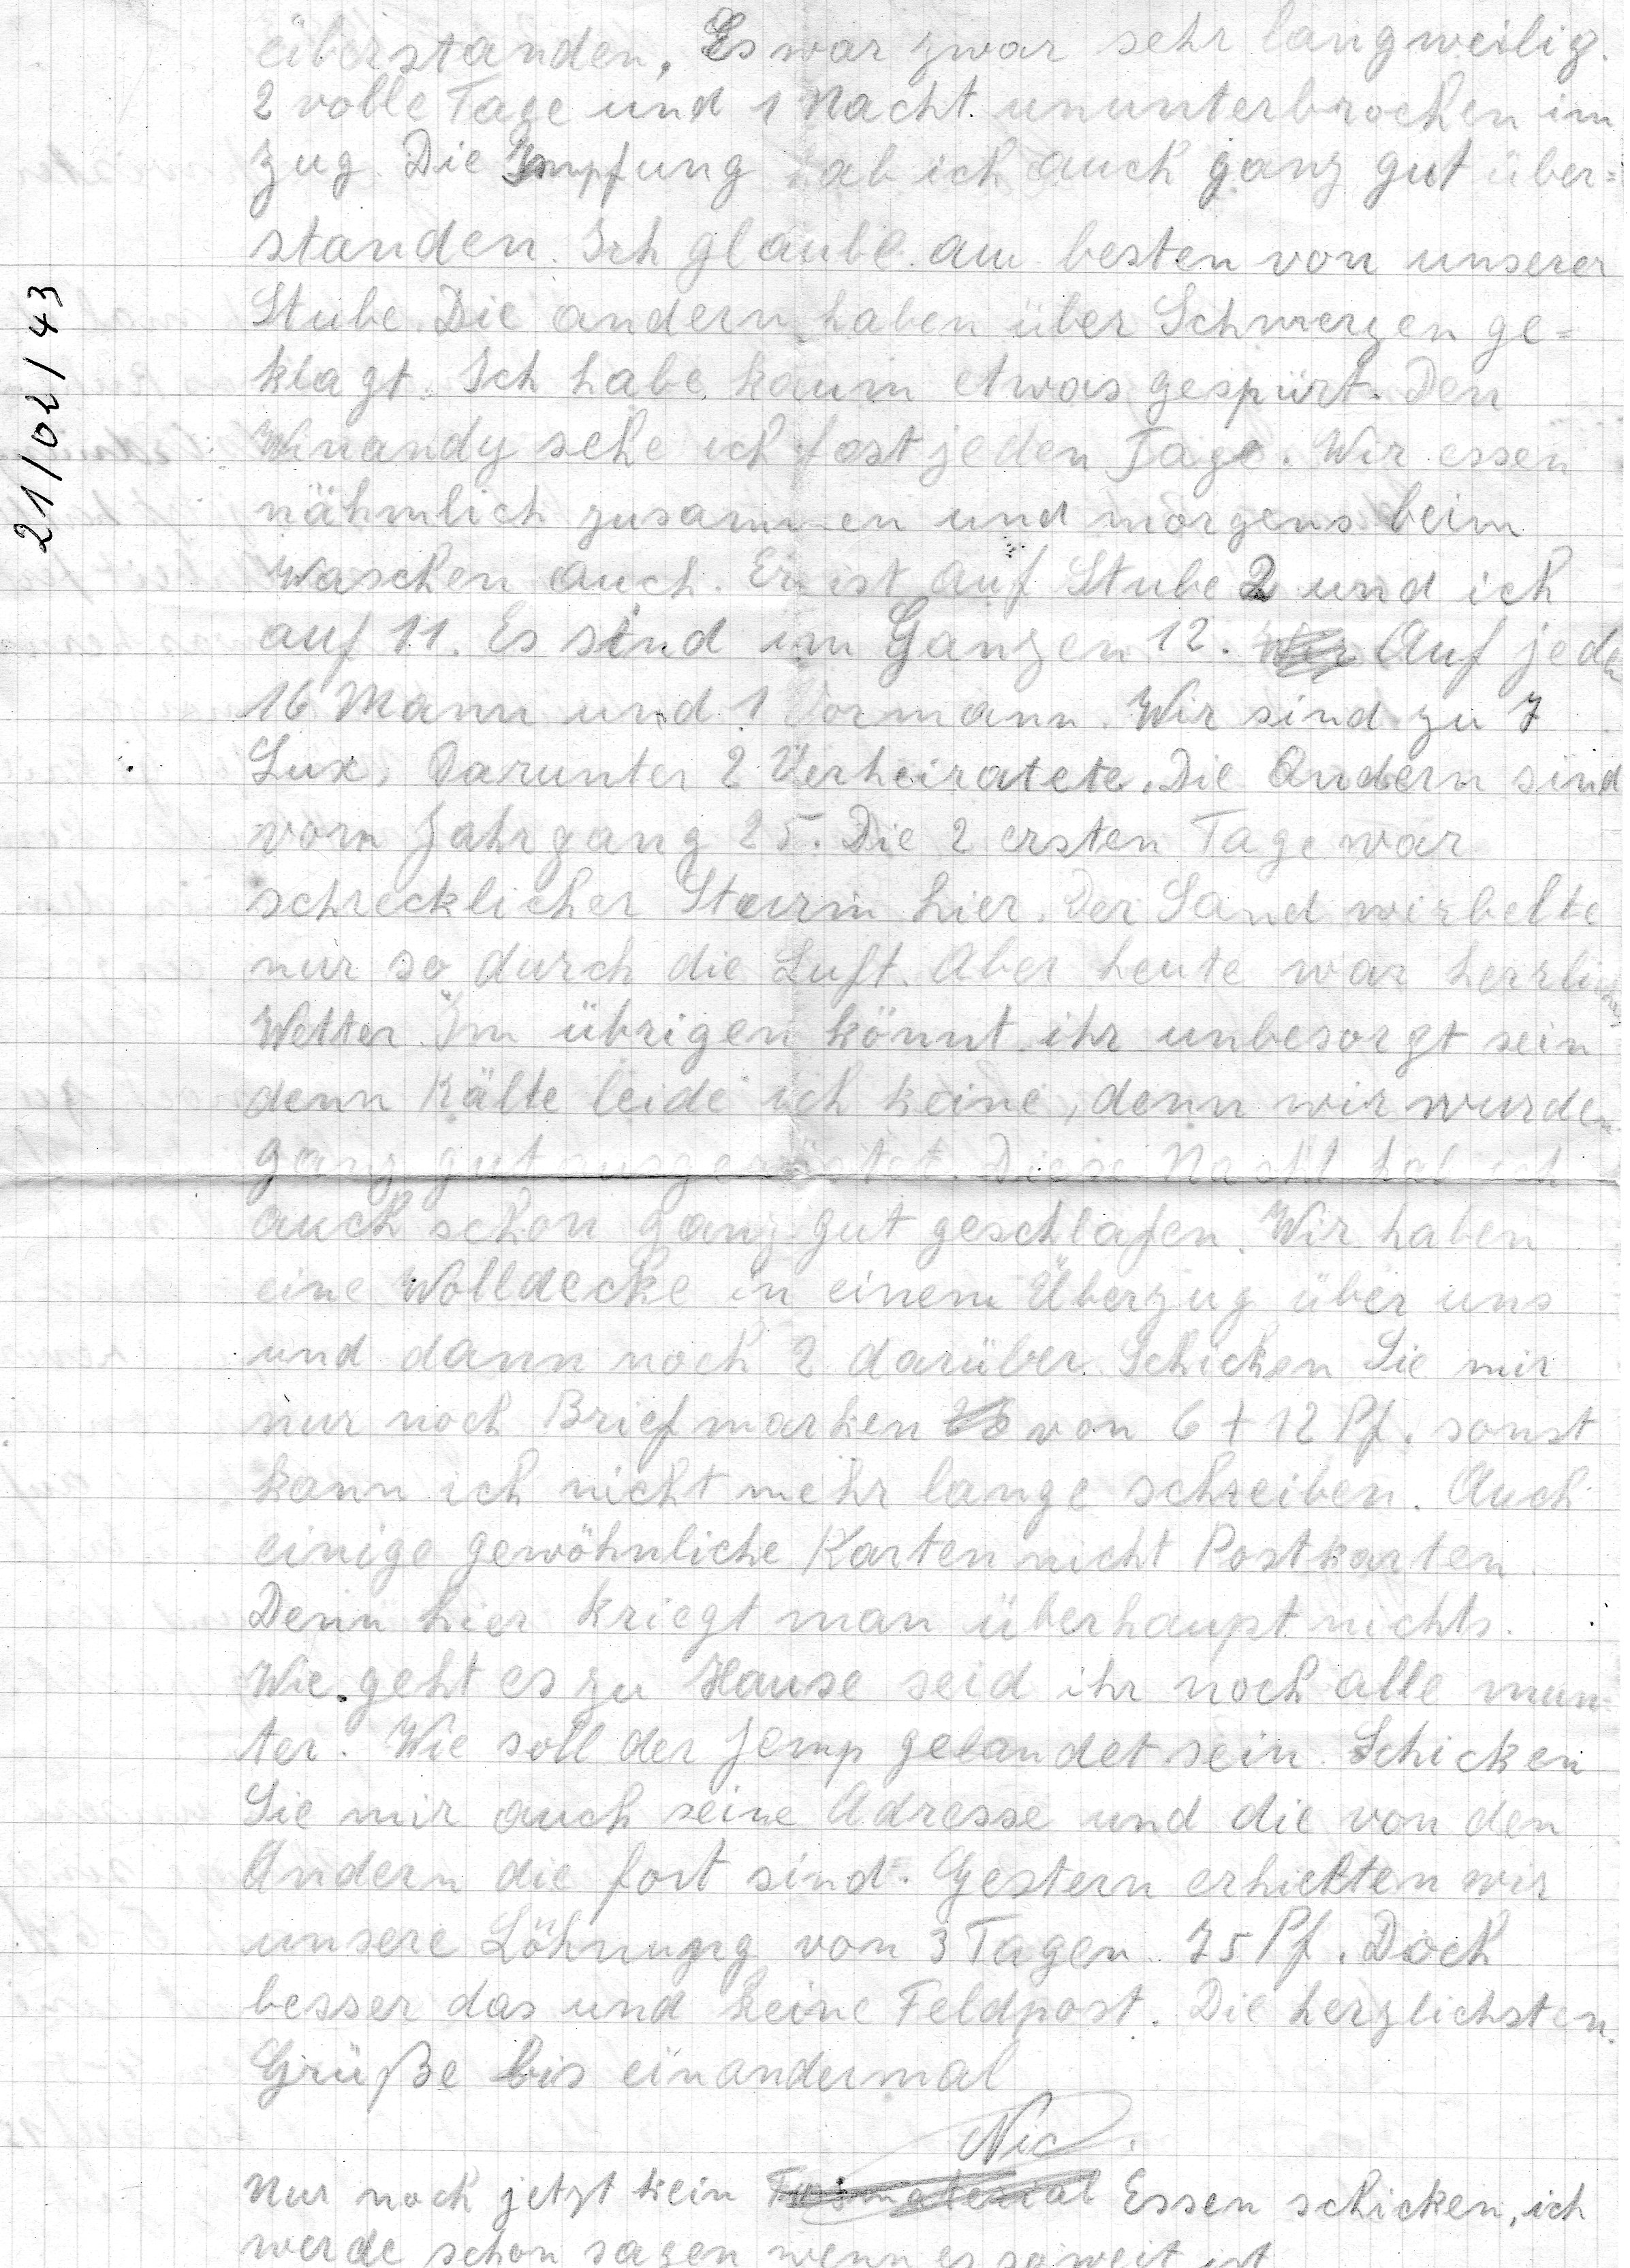 21/02/43
überstanden. Es war zwar sehr langweilig.
2 volle Tage und 1 Nacht ununterbrochen im
Zug. Die Impfung hab ich auch ganz gut über=
standen. Ich glaube am besten von unserer
Stube. Die andern haben über Schmerzen ge=
klagt. Ich habe kaum etwas gespürt. Den
sehe ich fast jeden Tage. Wir essen
nähmlich zusammen und morgens beim
Waschen auch. Er ist auf Stube 2 und ich
auf 11. Es sind im Ganzen 12. Auf jede
16 Mann und 1 Vormann. Wir sind zu 7
Lux, Darunter 2 Verheiratete. Die Andern sind
vom Jahrgang 25. Die 2 ersten Tage war
schrecklicher Sturm hier. Der Sand wirbelte
nur so durch die Luft. Aber heute war herrliches
Wetter. Im übrigen könnt ihr unbesorgt sein
denn Kälte leide ich keine, denn wir wurden
ganz gut ausgerüstet. Diese Nacht hab ich
auch schon ganz gut geschlafen. Wir haben
eine Wolldecke in einem Überzug über uns
und dann noch 2 darüber. Schicken Sie mir
nur noch Briefmarken von 6 + 12 Pf. sonst
kann ich nicht mehr lange schreiben. Auch
einige gewöhnliche Karten nicht Postkarten
Denn hier kriegt man überhaupt nichts.
Wie geht es zu Hause seid ihr noch alle mun-
ter. Wie soll der Jemp gelandet sein. Schicken
Sie mir auch seine Adresse und die von den
Andern die fort sind. Gestern erhielten wir
unsere Löhnung von 3 Tagen. 75 Pf. Doch
besser das und keine Feldpost. Die herzlichsten
Grüße bis einandermal
Nic.
Nur noch jetzt kein Essen schicken, ich
werde schon sagen wenn es soweit ist